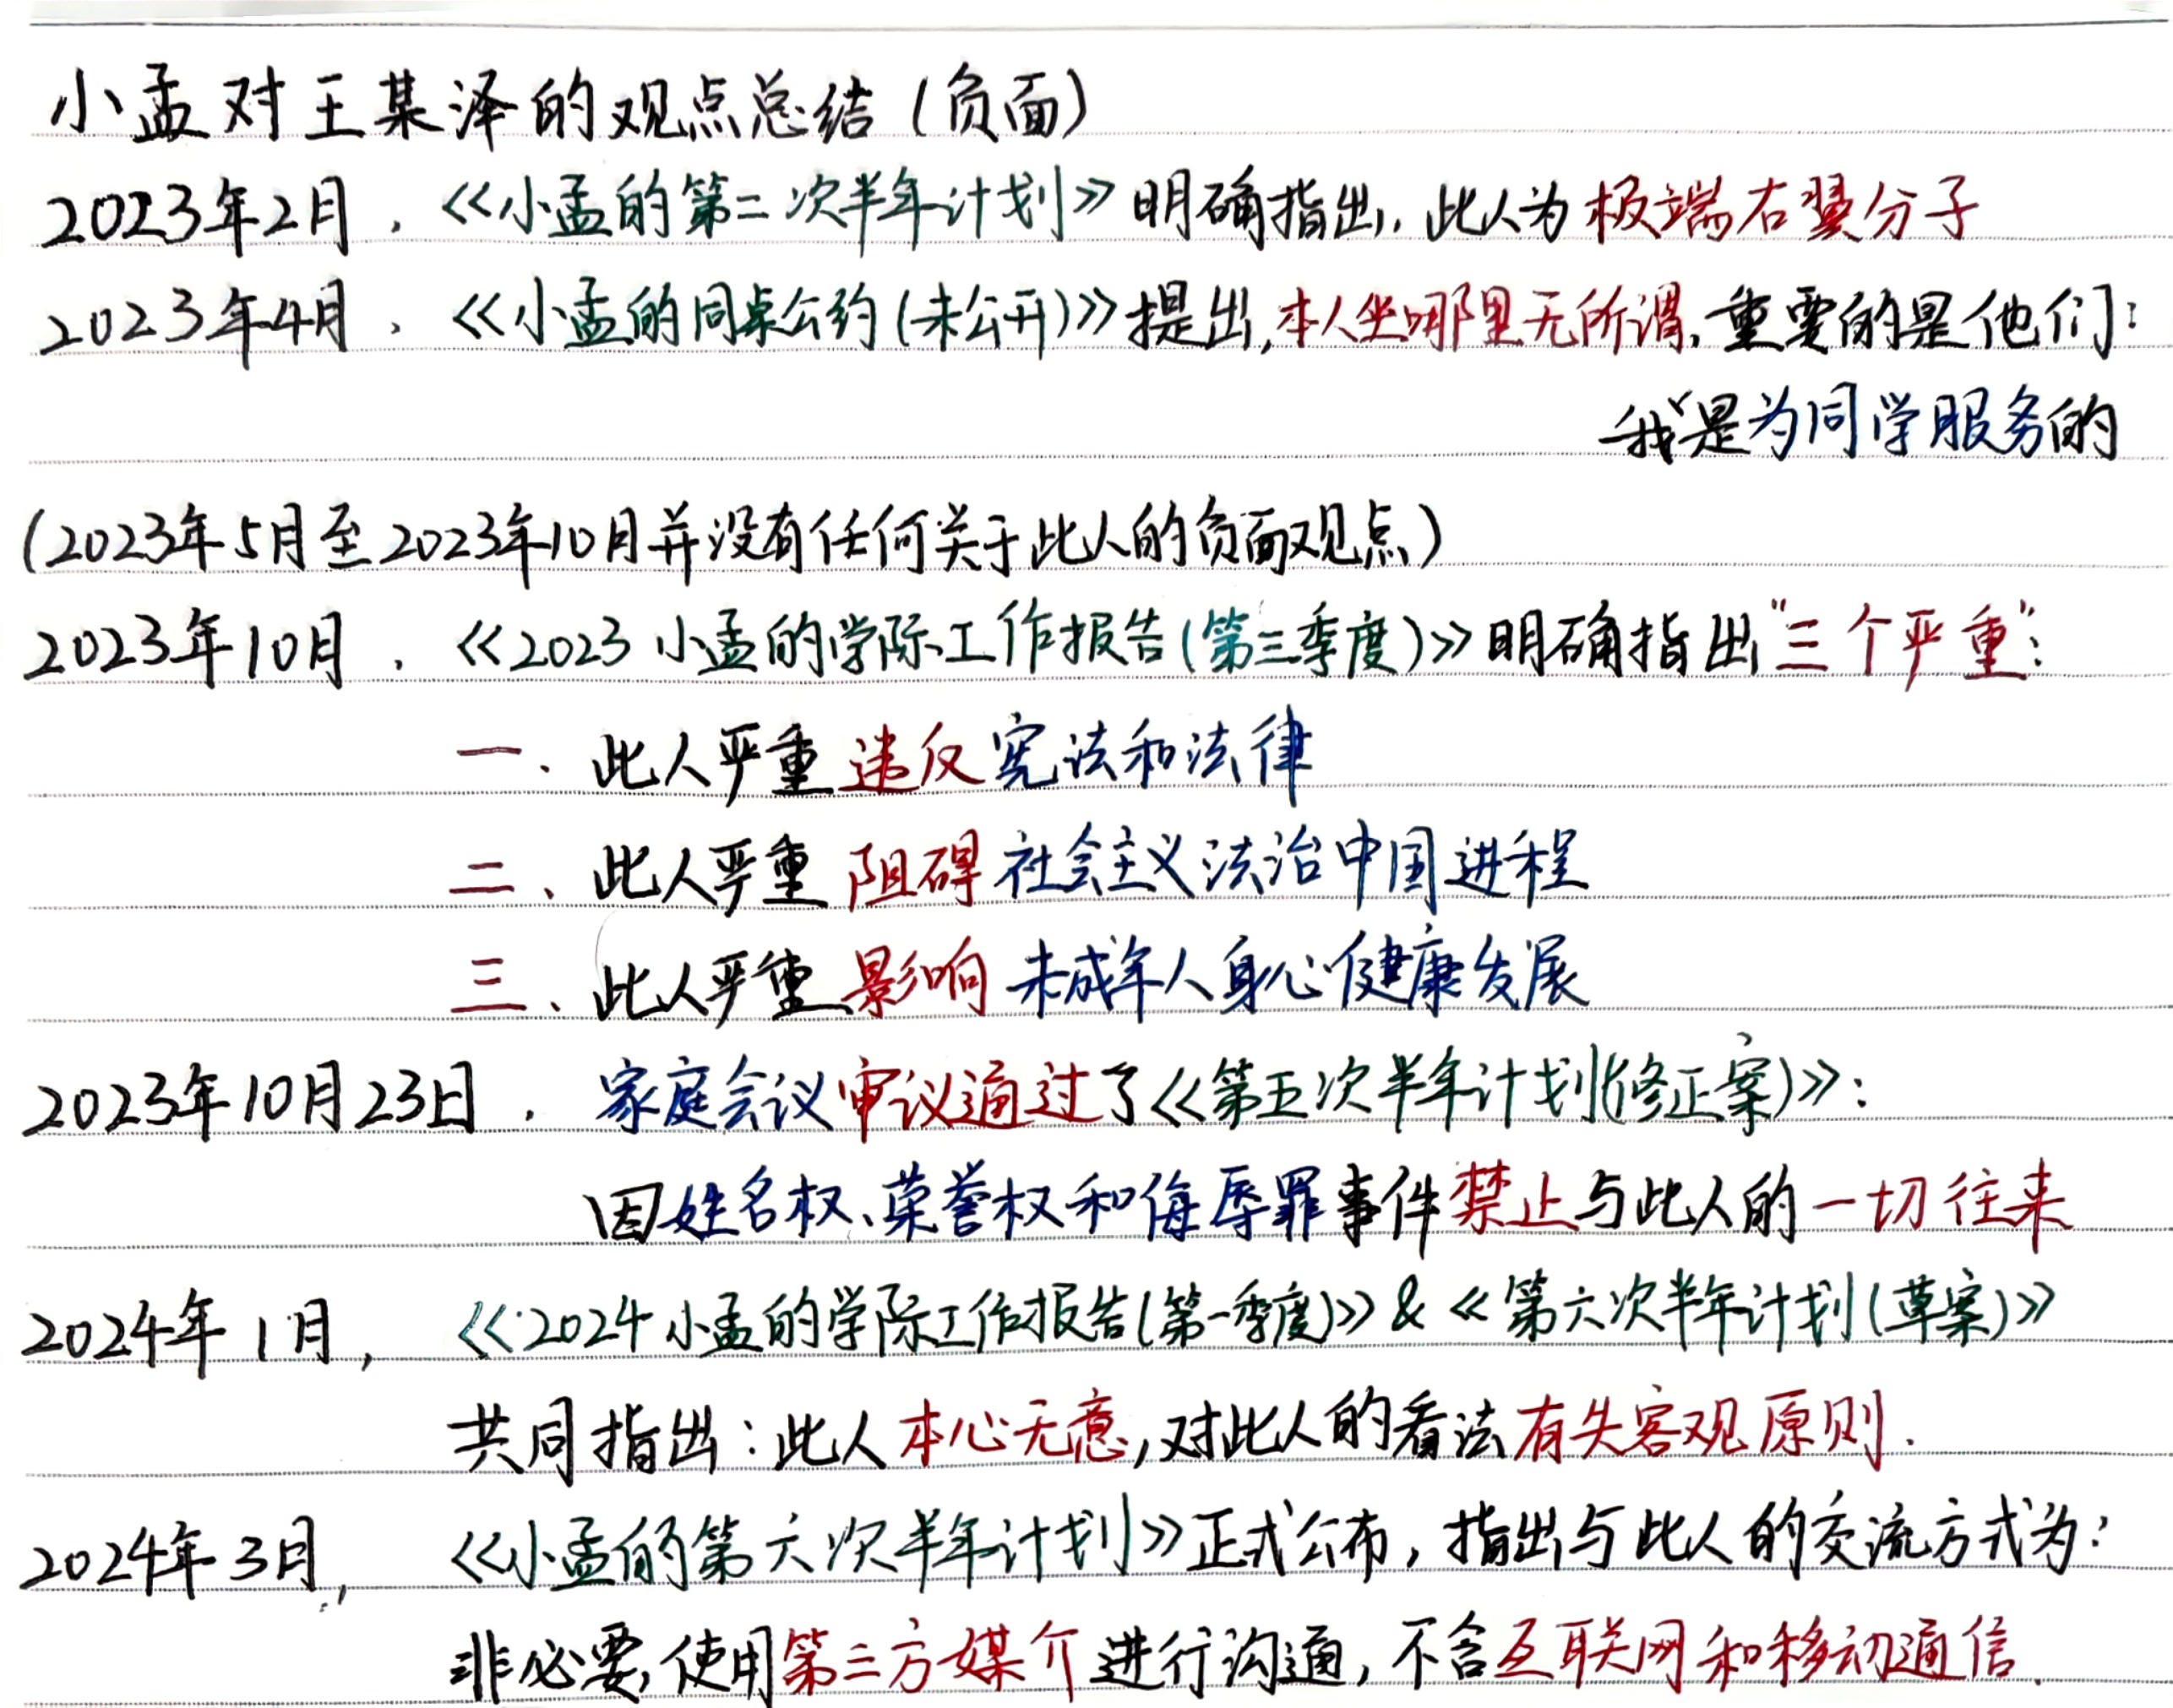 小孟对王某泽的观点总结(负面)
2023年2月,《小孟的第二次半年计划》明确指出,此人为极端右翼分子
2023年4月,《小孟的同桌公约(未公开)》提出,本人坐哪里无所谓,重要的是他们:
我是为同学服务的
(2023年5月至2023年10月并没有任何关于此人的负面观点)
2023年10月,《2023小孟的学际工作报告(第三季度)》明确指出"三个严重":
一、此人严重违反宪法和法律
二、此人严重阻碍社会主义法治中国进程
三、此人严重影响未成年人身心健康发展
2023年10月23日,家庭会议审议通过了《第五次半年计划(修正案)》:
因姓名权、荣誉权和侮辱罪事件禁止与此人的一切往来
2024年1月,《2024小孟的学际工作报告(第一季度)》&《第六次半年计划(草案)》
共同指出:此人本心无意,对此人的看法有失客观原则.
2024年3月,《小孟的第六次半年计划》正式公布,指出与此人的交流方式为:
非必要,使用第三方媒介进行沟通,不含互联网和移动通信.